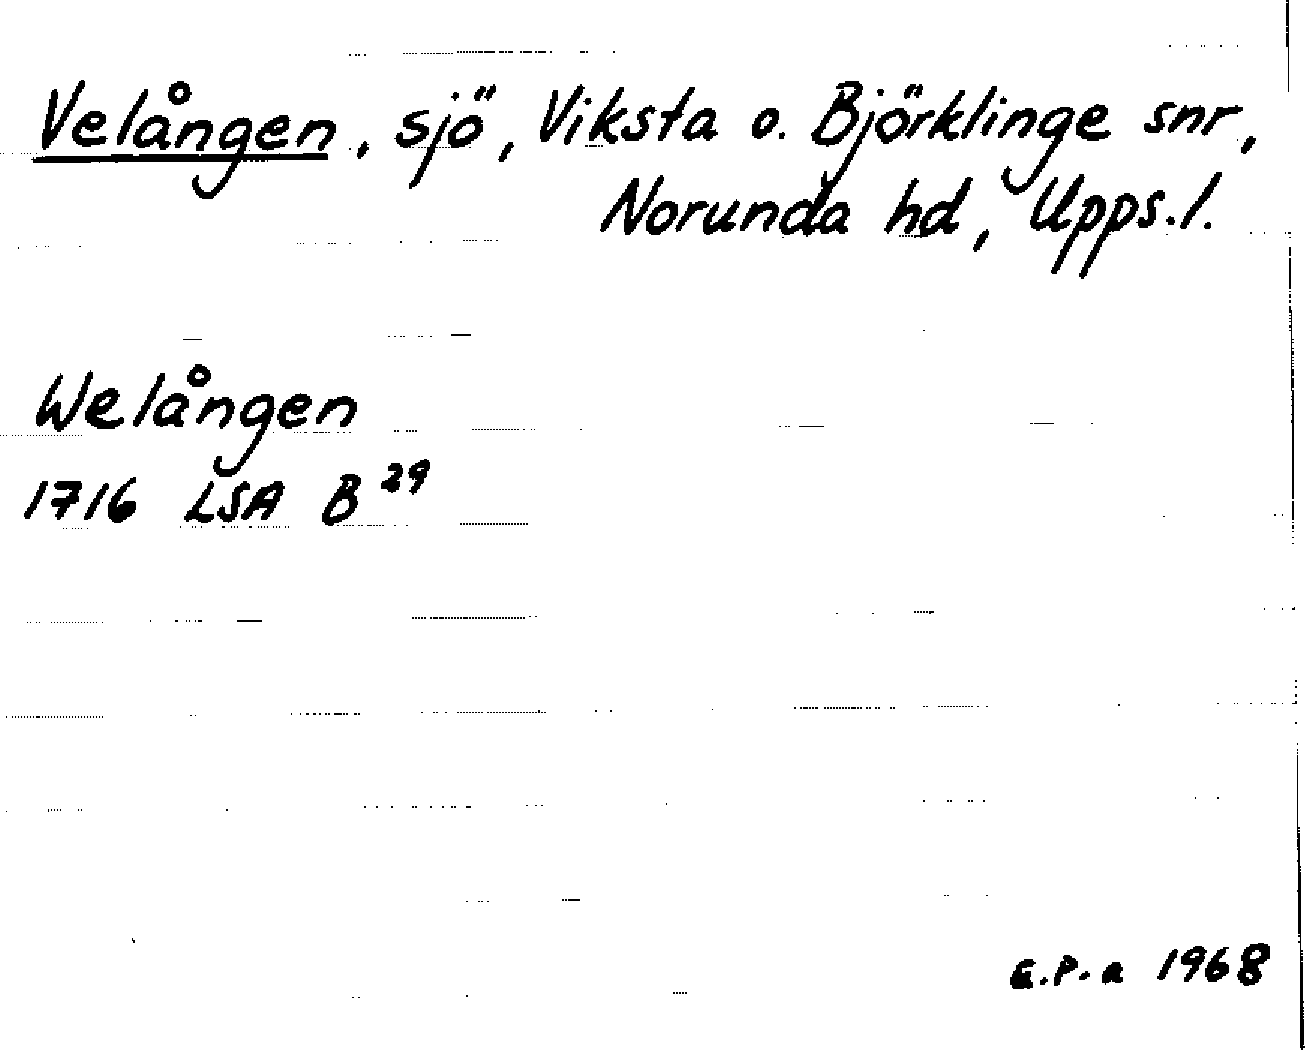 Velången, sjö, Viksta o. Björklinge snr,
Norunda hd, Upps.l.
Welången
1716 LSA B 29
G.P.a 1968